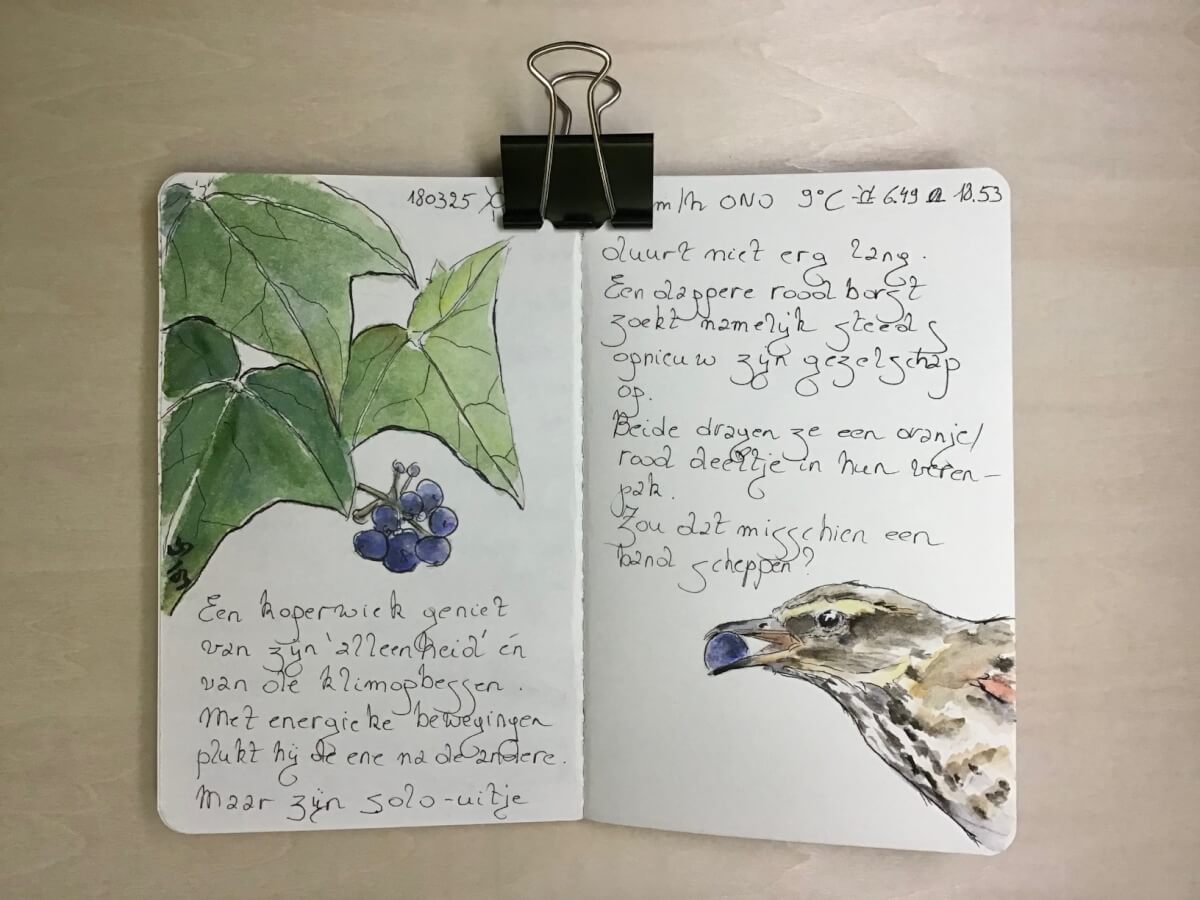 180325
m/h ONO 9°C 6.49 18.53
Een koperwiek geniet
van zijn 'alleenheid' én
van de klimopbessen.
Met energieke bewegingen
plukt hij de ene na de andere.
Maar zijn solo-uitje
duurt niet erg lang.
Een dappere roodborst
zoekt namelijk steeds
opnieuw zijn gezelschap
op.
Beide dragen ze een oranje/
rood deeltje in hun veren-
pak.
Zou dat misschien een
band scheppen?